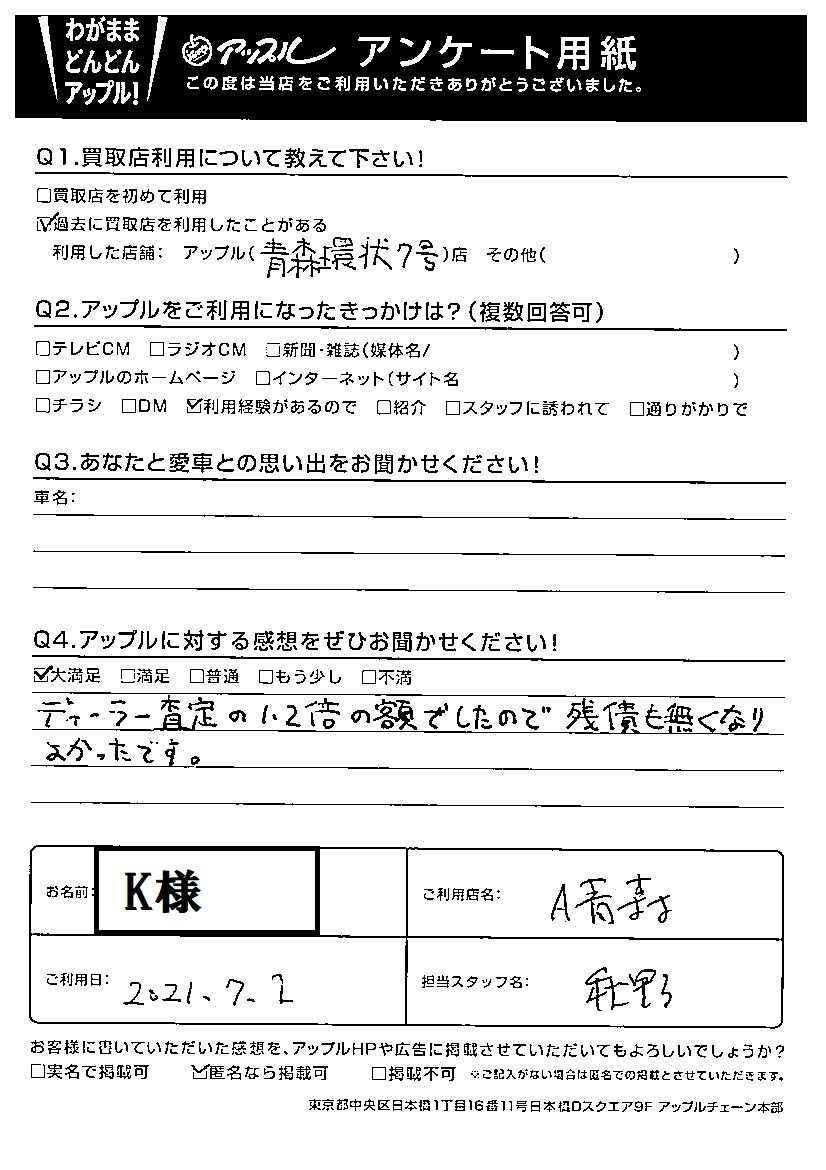 わがまま
どんどん
アップル!
アップル アンケート用紙
この度は当店をご利用いただきありがとうございました。
Q1.買取店利用について教えて下さい!
□買取店を初めて利用
☑過去に買取店を利用したことがある
利用した店舗: アップル(青森環状7号)店 その他( )
Q2.アップルをご利用になったきっかけは?(複数回答可)
□テレビCM □ラジオCM □新聞・雑誌(媒体名/ )
□アップルのホームページ □インターネット(サイト名 )
□チラシ □DM ☑利用経験があるので □紹介 □スタッフに誘われて □通りがかりで
Q3.あなたと愛車との思い出をお聞かせください!
車名:
Q4.アップルに対する感想をぜひお聞かせください!
☑大満足 □満足 □普通 □もう少し □不満
ディーラー査定の1.2倍の額でしたので 残債も無くなり
よかったです。
お名前: K様
ご利用店名: A青森
ご利用日: 2021.7.2
担当スタッフ名: 秋野
お客様に書いていただいた感想を、アップルHPや広告に掲載させていただいてもよろしいでしょうか?
□実名で掲載可 ☑匿名なら掲載可 □掲載不可 ※ご記入がない場合は匿名での掲載とさせていただきます。
東京都中央区日本橋1丁目16番11号日本橋Dスクエア9F アップルチェーン本部